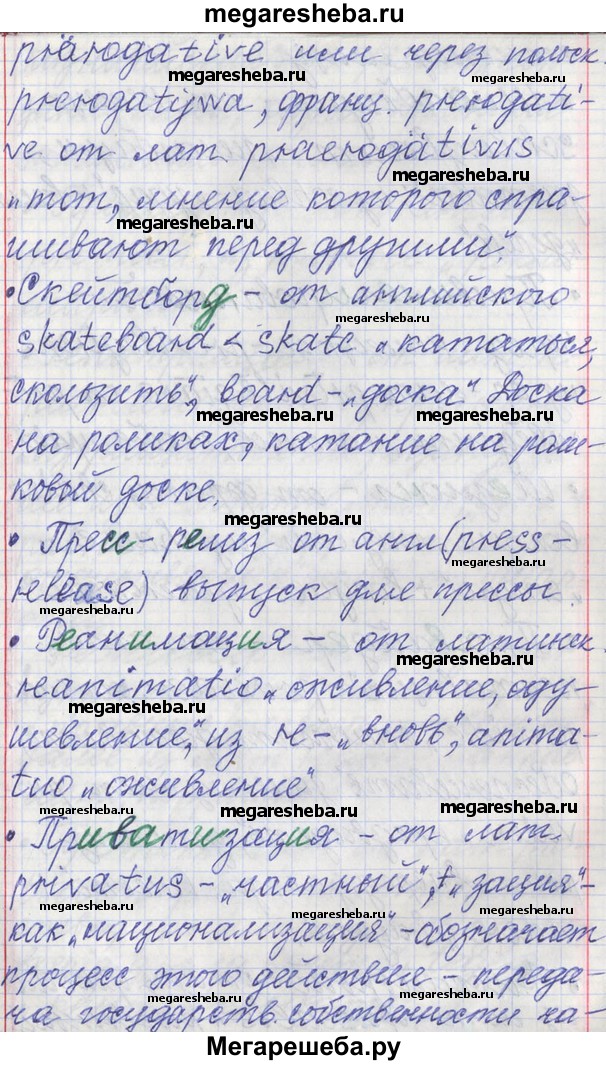 megaresheba.ru
prärogative или через польск.
prerogatywa, франц. prerogati-
ve от лат. praerogätivus
„тот, мнение которого спра-
шивают перед другими".
• Скейтборд – от английского
skateboard < skate „кататься,
скользить", board – „доска". Доска
на роликах, катание на роли-
ковый доске.
• Пресс-релиз от англ (press-
release) выпуск для прессы.
• Реанимация – от латинск.
reanimatio „оживление, оду-
шевление", из re – „вновь", anima-
tuo „оживление"
• Приватизация – от лат.
privatus – „частный", + „зация" –
как „национализация" – обозначает
процесс этого действия – переда-
ча государств. собственности ча-
Мегарешеба.ру